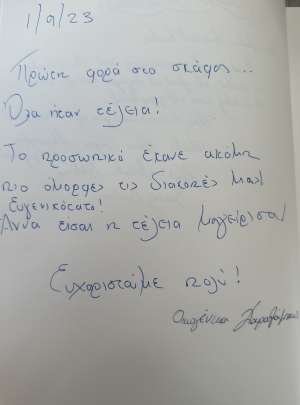 1/9/23
Πρώτη φορά στο σκάφος...
Όλα ήταν τέλεια!
Το προσωπικό έκανε ακόμη
πιο όμορφες τις διακοπές μας!
Ευγενικότατο!
Άννα είσαι η τέλεια μαγείρισσα
Ευχαριστούμε πολύ!
Οικογένεια